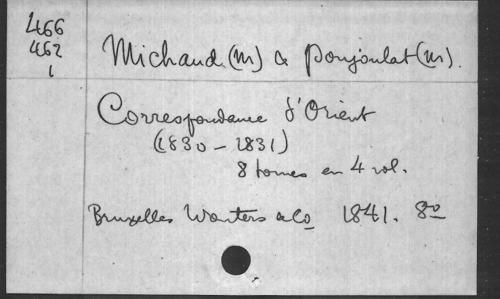 466
462
1
Michaud (M) & Poujoulat (M).
Correspondance d'Orient
(1830 - 1831)
8 tomes en 4 vol.
Bruxelles Wouters & Co 1841. 8º